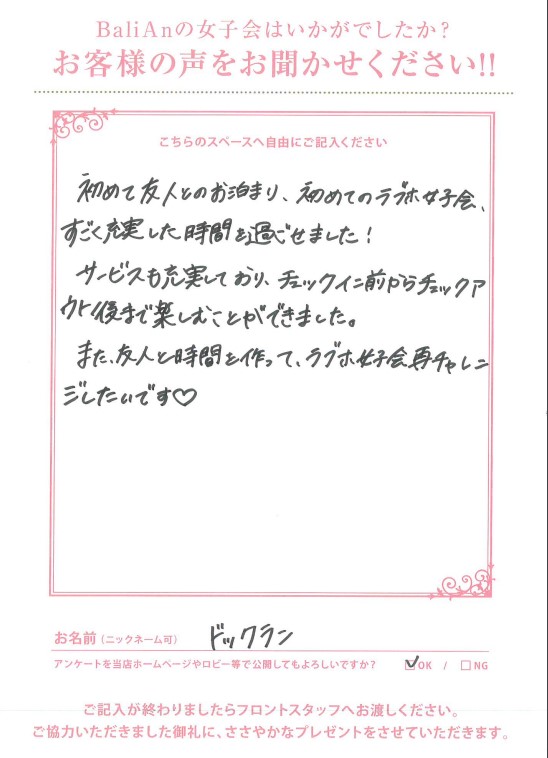 BaliAnの女子会はいかがでしたか?
お客様の声をお聞かせください!!
こちらのスペースへ自由にご記入ください
初めて友人とのお泊まり、初めてのラブホ女子会、
すごく充実した時間を過ごせました!
サービスも充実しており、チェックイン前からチェックア
ウト後まで楽しむことができました。
また、友人と時間を作って、ラブホ女子会再チャレン
ジしたいです♡
お名前(ニックネーム可) ドックラン
アンケートを当店ホームページやロビー等で公開してもよろしいですか? ☑OK / □NG
ご記入が終わりましたらフロントスタッフへお渡しください。
ご協力いただきました御礼に、ささやかなプレゼントをさせていただきます。